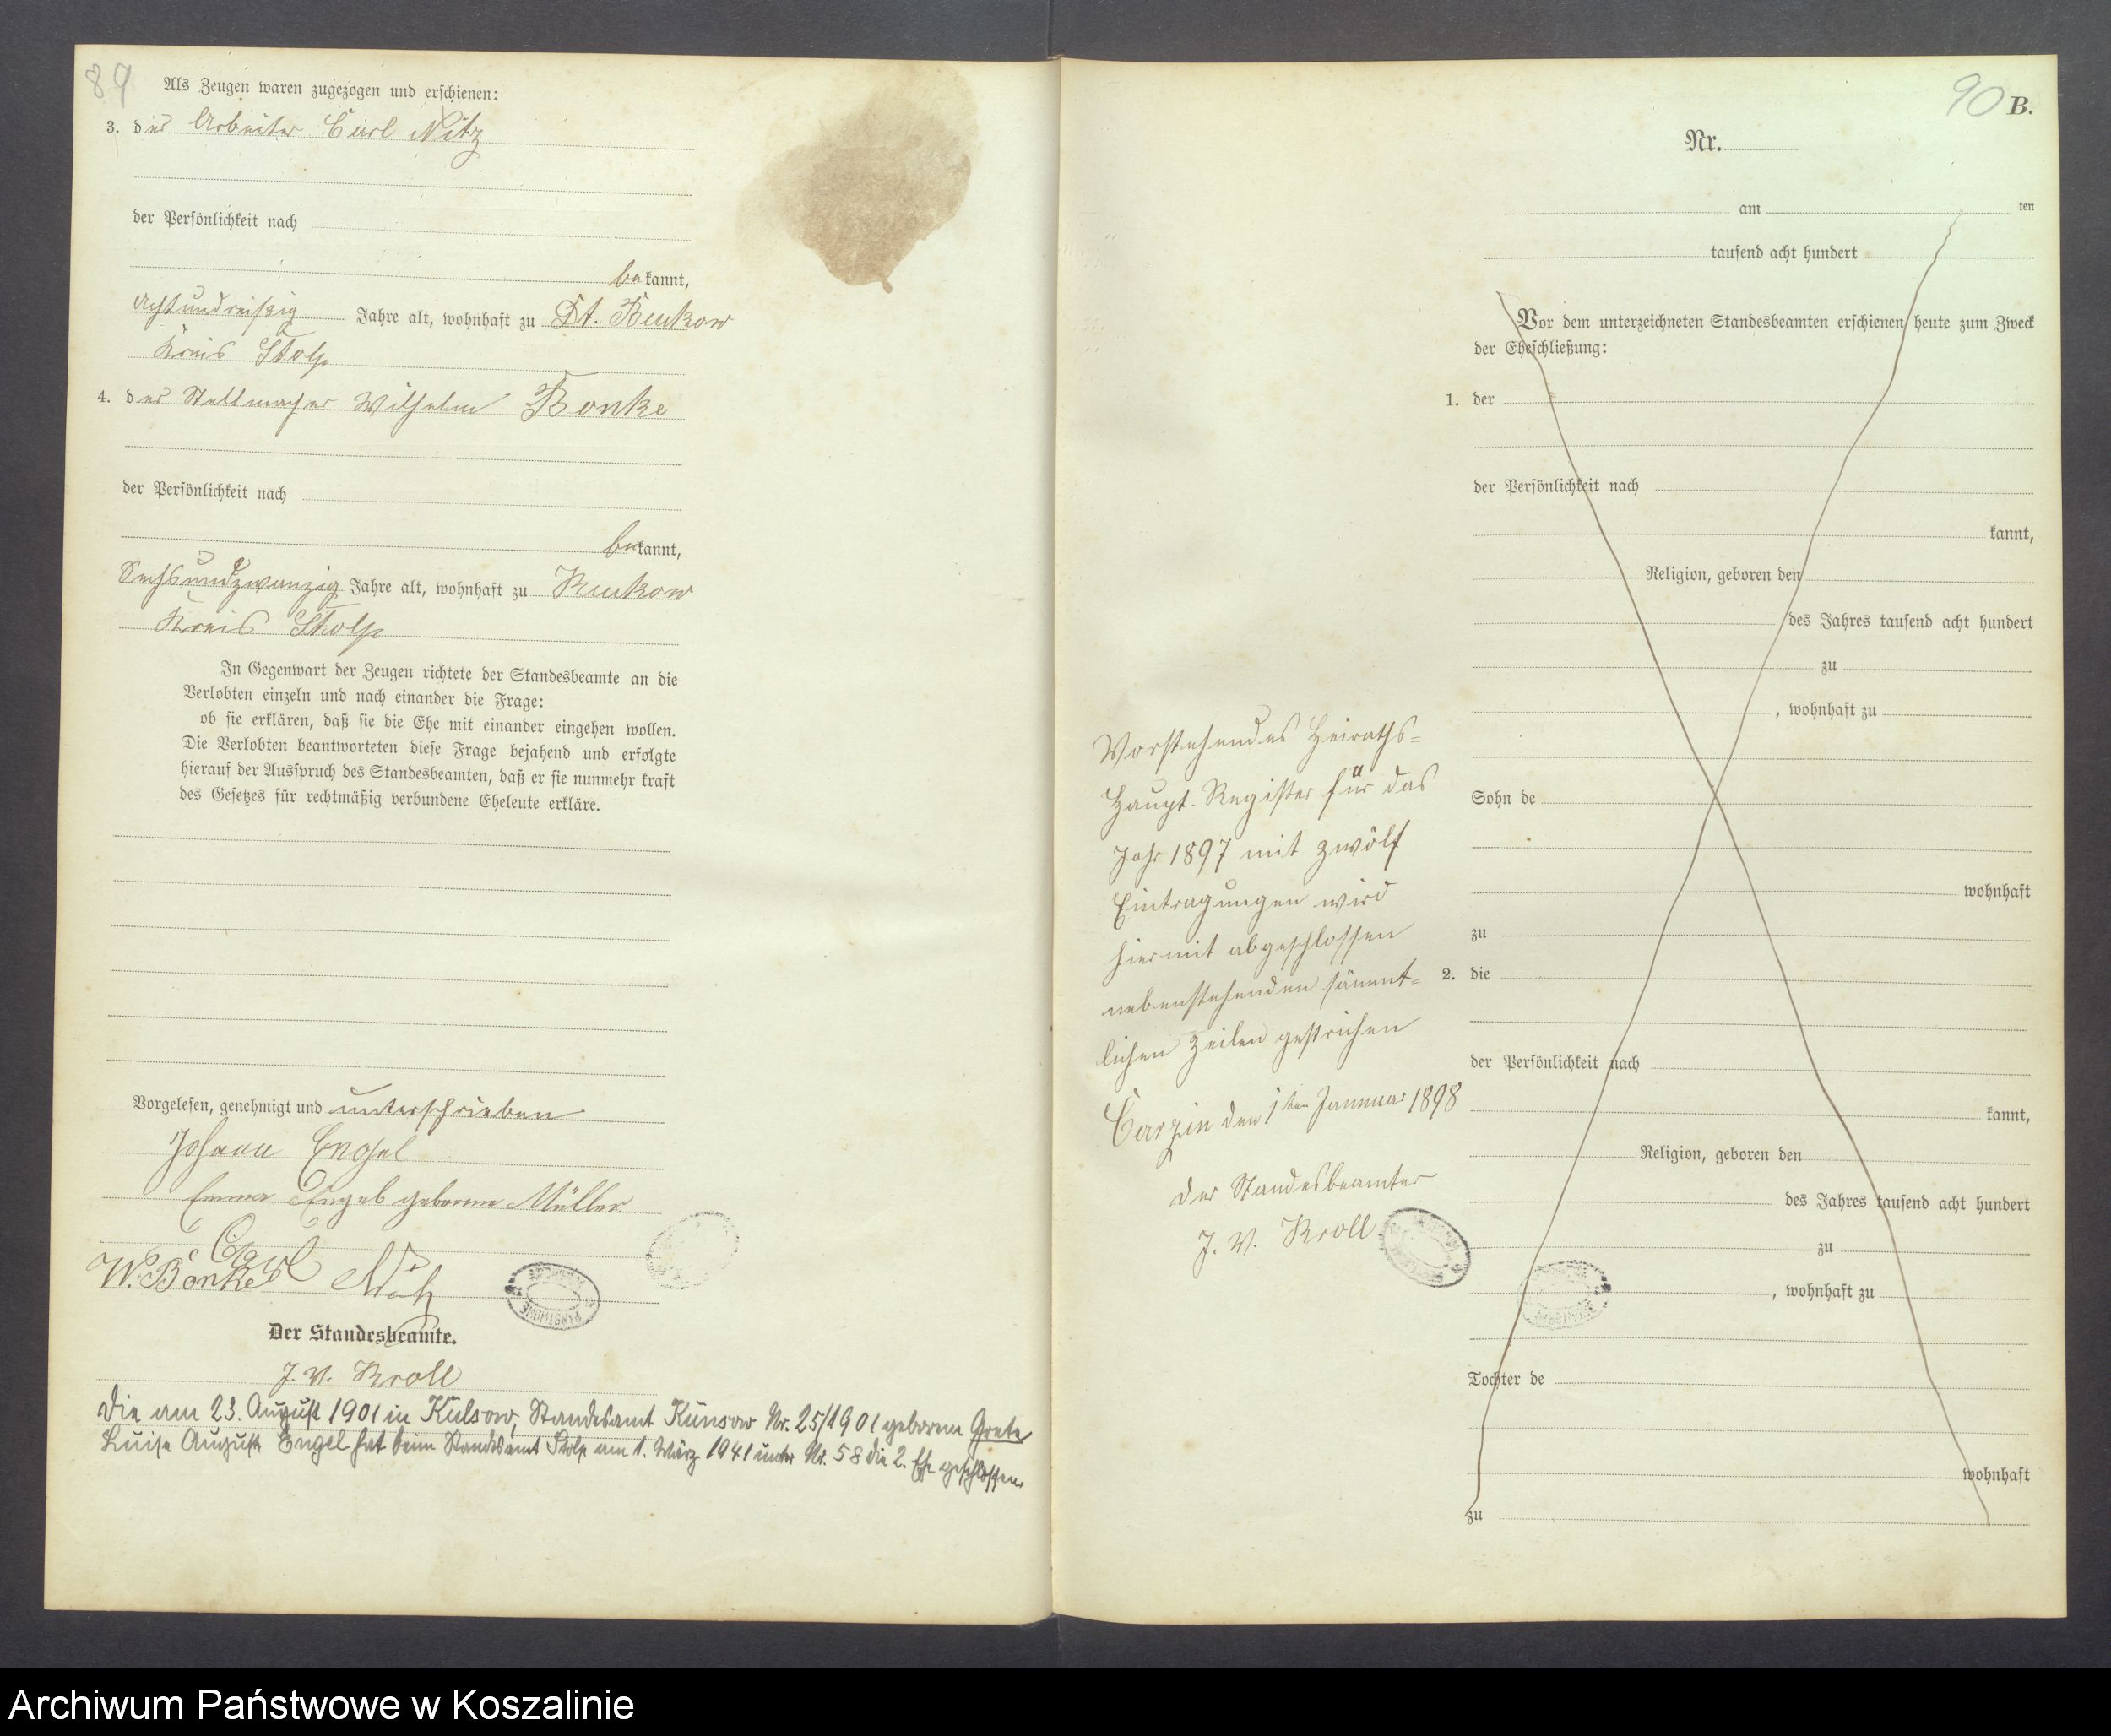 89
Als Zeugen waren zugezogen und erschienen:
3. der Arbeiter Carl Nitz
der Persönlichkeit nach
bekannt,
achtunddreißig Jahre alt, wohnhaft zu Dt. Buckow
Kreis Stolp
4. der Stellmacher Wilhelm Bonke
der Persönlichkeit nach
bekannt,
Sechsundzwanzig Jahre alt, wohnhaft zu
Kreis Stolp
In Gegenwart der Zeugen richtete der Standesbeamte an die
Verlobten einzeln und nach einander die Frage:
ob sie erklären, daß sie die Ehe mit einander eingehen wollen.
Die Verlobten beantworteten diese Frage bejahend und erfolgte
hierauf der Ausspruch des Standesbeamten, daß er sie nunmehr kraft
des Gesetzes für rechtmäßig verbundene Eheleute erkläre.
Vorgelesen, genehmigt und unterschrieben
Johann Engel
Emma Engel geborene Müller
Carl Nitz
W. Bonke
Der Standesbeamte.
J. V. Kroll
Die am 23. August 1901 in Kulsow, Standesamt Kunsow Nr. 25/1901 geborene Grete
Luise Auguste Engel hat beim Standesamt Stolp am 1. März 1941 unter Nr. 58 die 2. Ehe geschlossen.
90 B.
Nr.
am ten
tausend acht hundert
Vor dem unterzeichneten Standesbeamten erschienen heute zum Zweck
der Eheschließung:
1. der
der Persönlichkeit nach
kannt,
Religion, geboren den
des Jahres tausend acht hundert
zu
, wohnhaft zu
Sohn de
wohnhaft
zu
2. die
der Persönlichkeit nach
kannt,
Religion, geboren den
des Jahres tausend acht hundert
zu
, wohnhaft zu
Tochter de
wohnhaft
zu
Vorstehendes Heiraths=
Haupt-Register für das
Jahr 1897 mit zwölf
Eintragungen wird
hiermit abgeschlossen
nebenstehenden sämmt=
lichen Zeilen gestrichen
Carzin den 1ten Januar 1898
Der Standesbeamter
J. V. Kroll
Archiwum Państwowe w Koszalinie